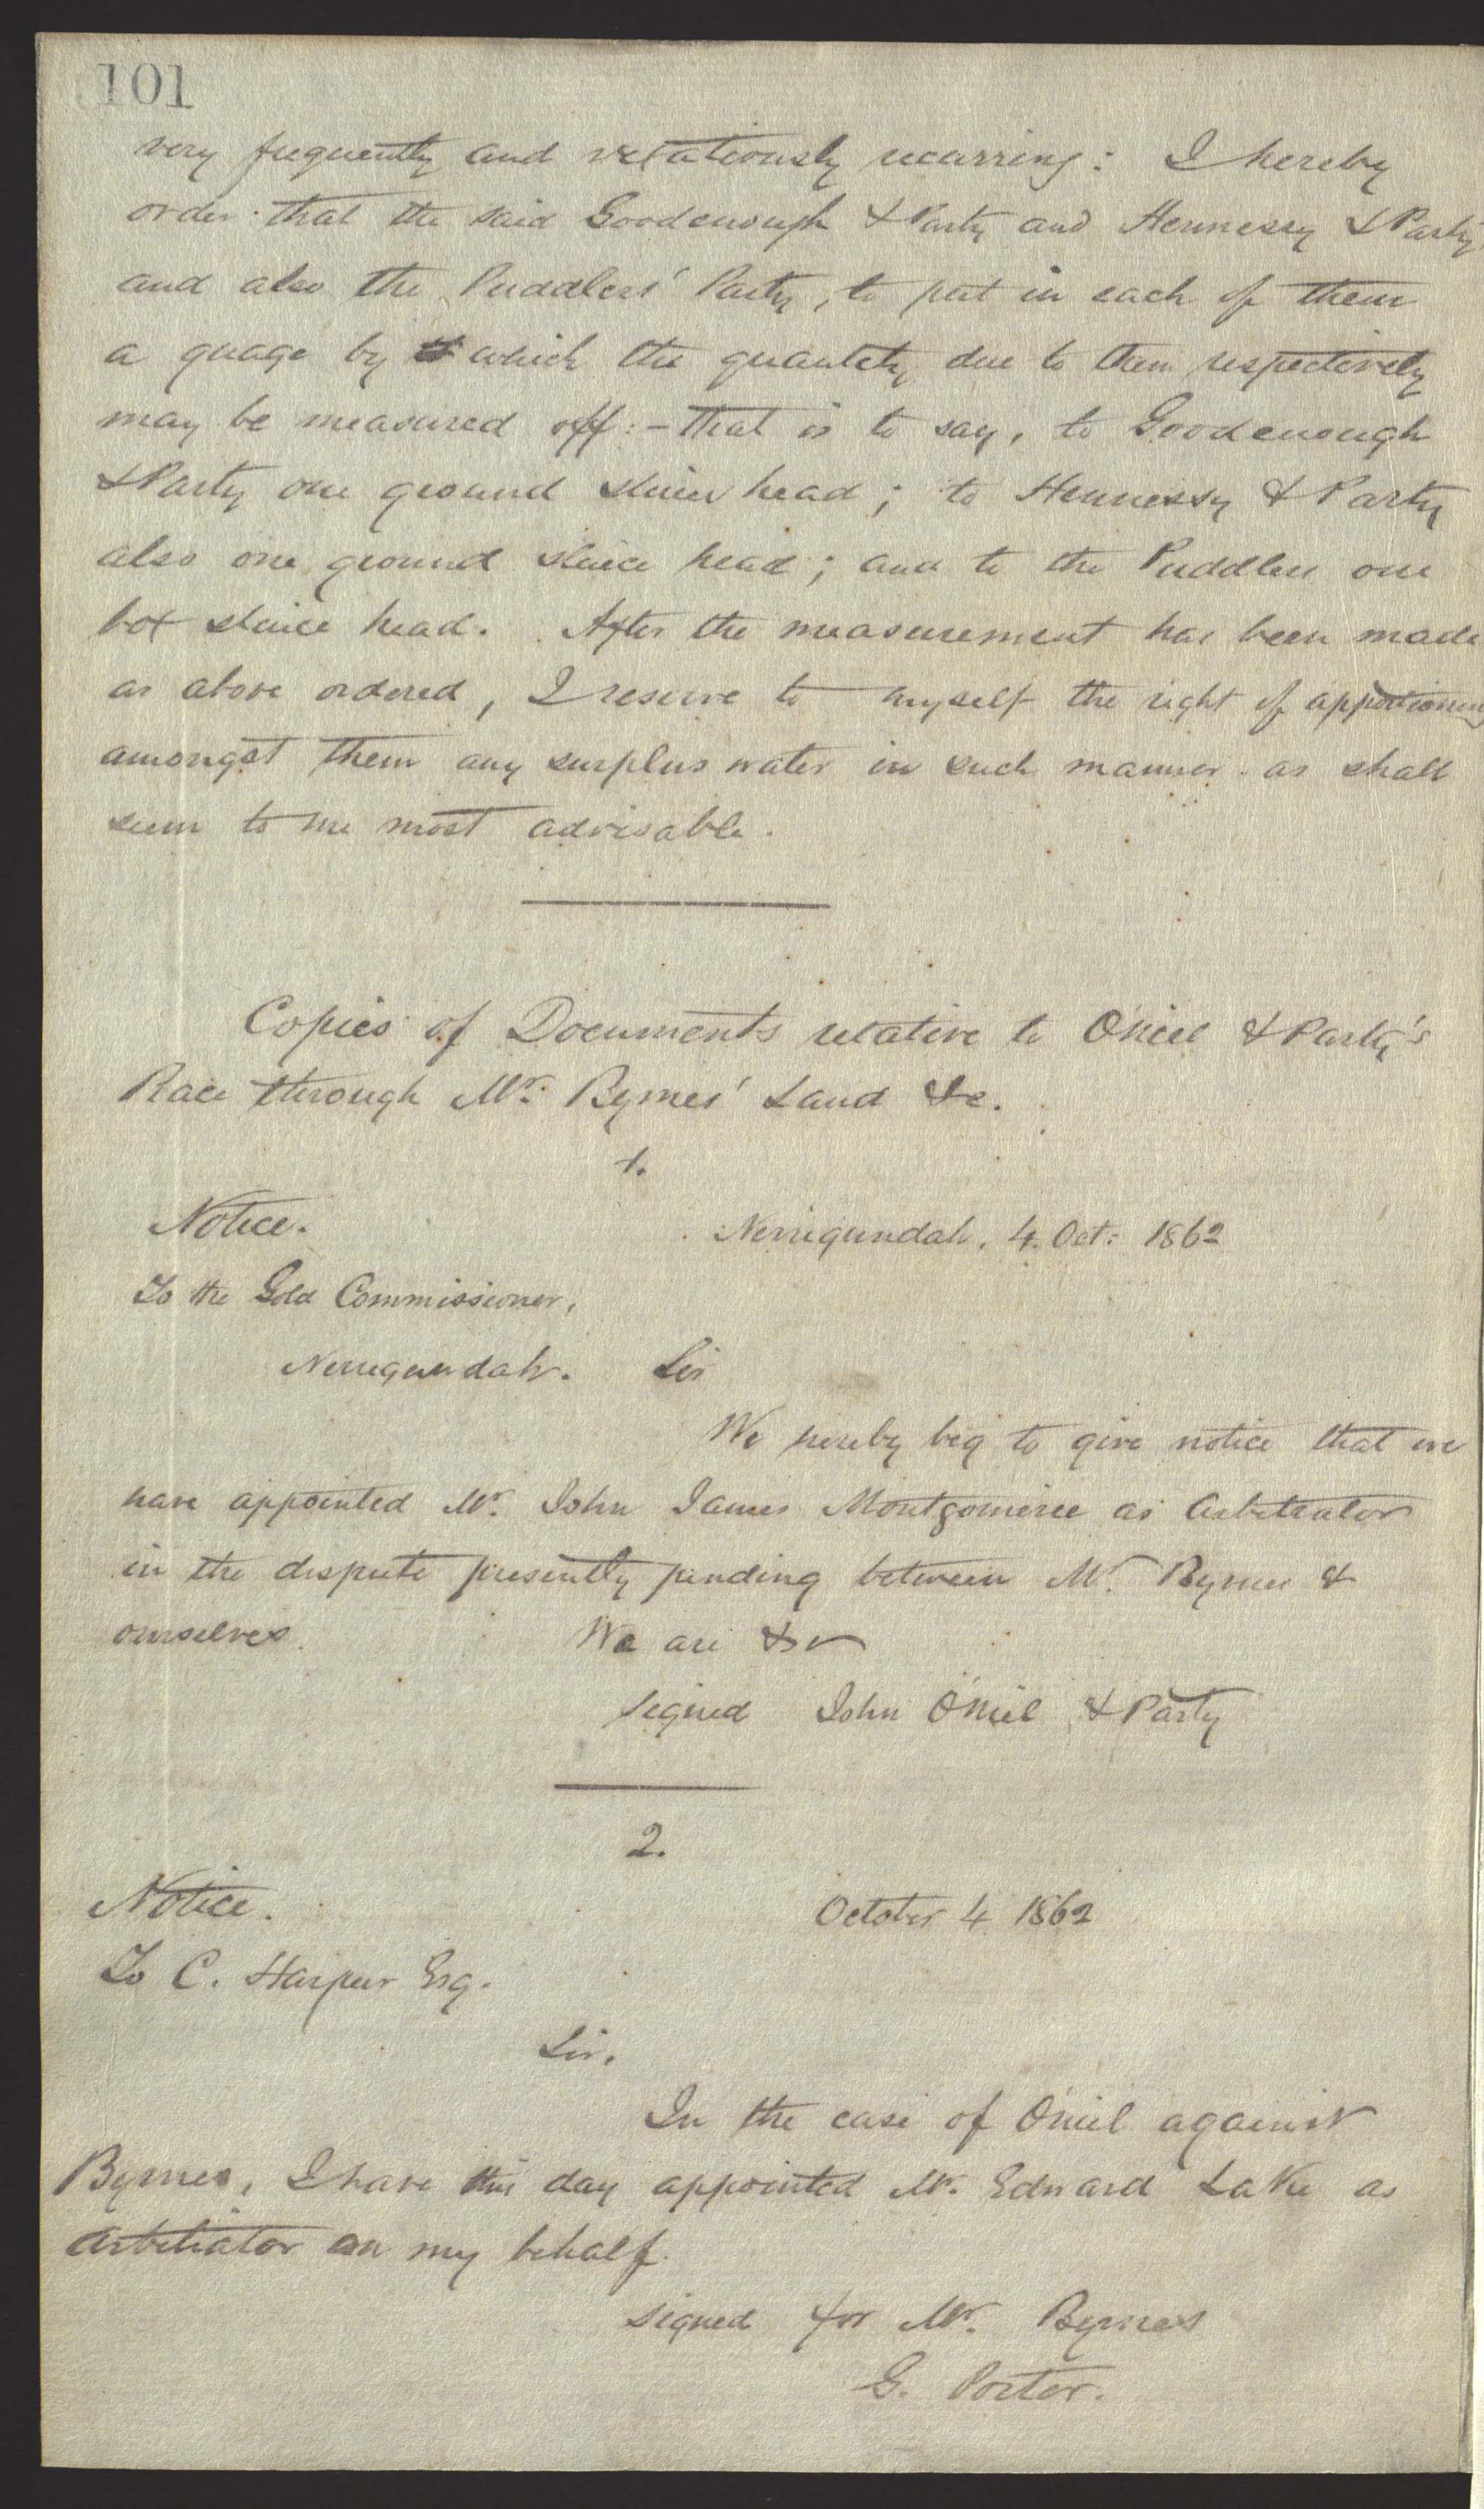 101
very frequently and vexatiously recurring: I hereby
order that the said Goodenough & Party and Hennessy & Party
and also the Puddlers' Party, to put in each of them
a guage by which the quantity due to them respectively
may be measured off:- that is to say, to Goodenough
& Party one ground sluice head; to Hennessy & Party
also one ground sluice head; and to the Puddlers one
box sluice head. After the measurement has been made
as above ordered, I reserve to myself the right of apportioning
amongst them any surplus water in such manner as shall
seem to me most advisable.
Copies of Documents relative to O'Niel & Party's
Race through Mr. Byrnes' Land &c.
1.
Notice. Nerrigundah, 4. Oct: 1862
To the Gold Commissioner,
Nerrigundah. Sir
We hereby beg to give notice that we
have appointed Mr. John James Montgomerie as Arbitrator
in the dispute presently pending between Mr. Byrnes &
ourselves. We are &c
signed John O'Niel & Party
2.
Notice. October 4 1862
To C. Harpur Esq.
Sir,
In the case of O'niel against
Byrnes, I have this day appointed Mr. Edward LaKe as
Arbitrator on my behalf.
signed for Mr. Byrnes
G. Porter.